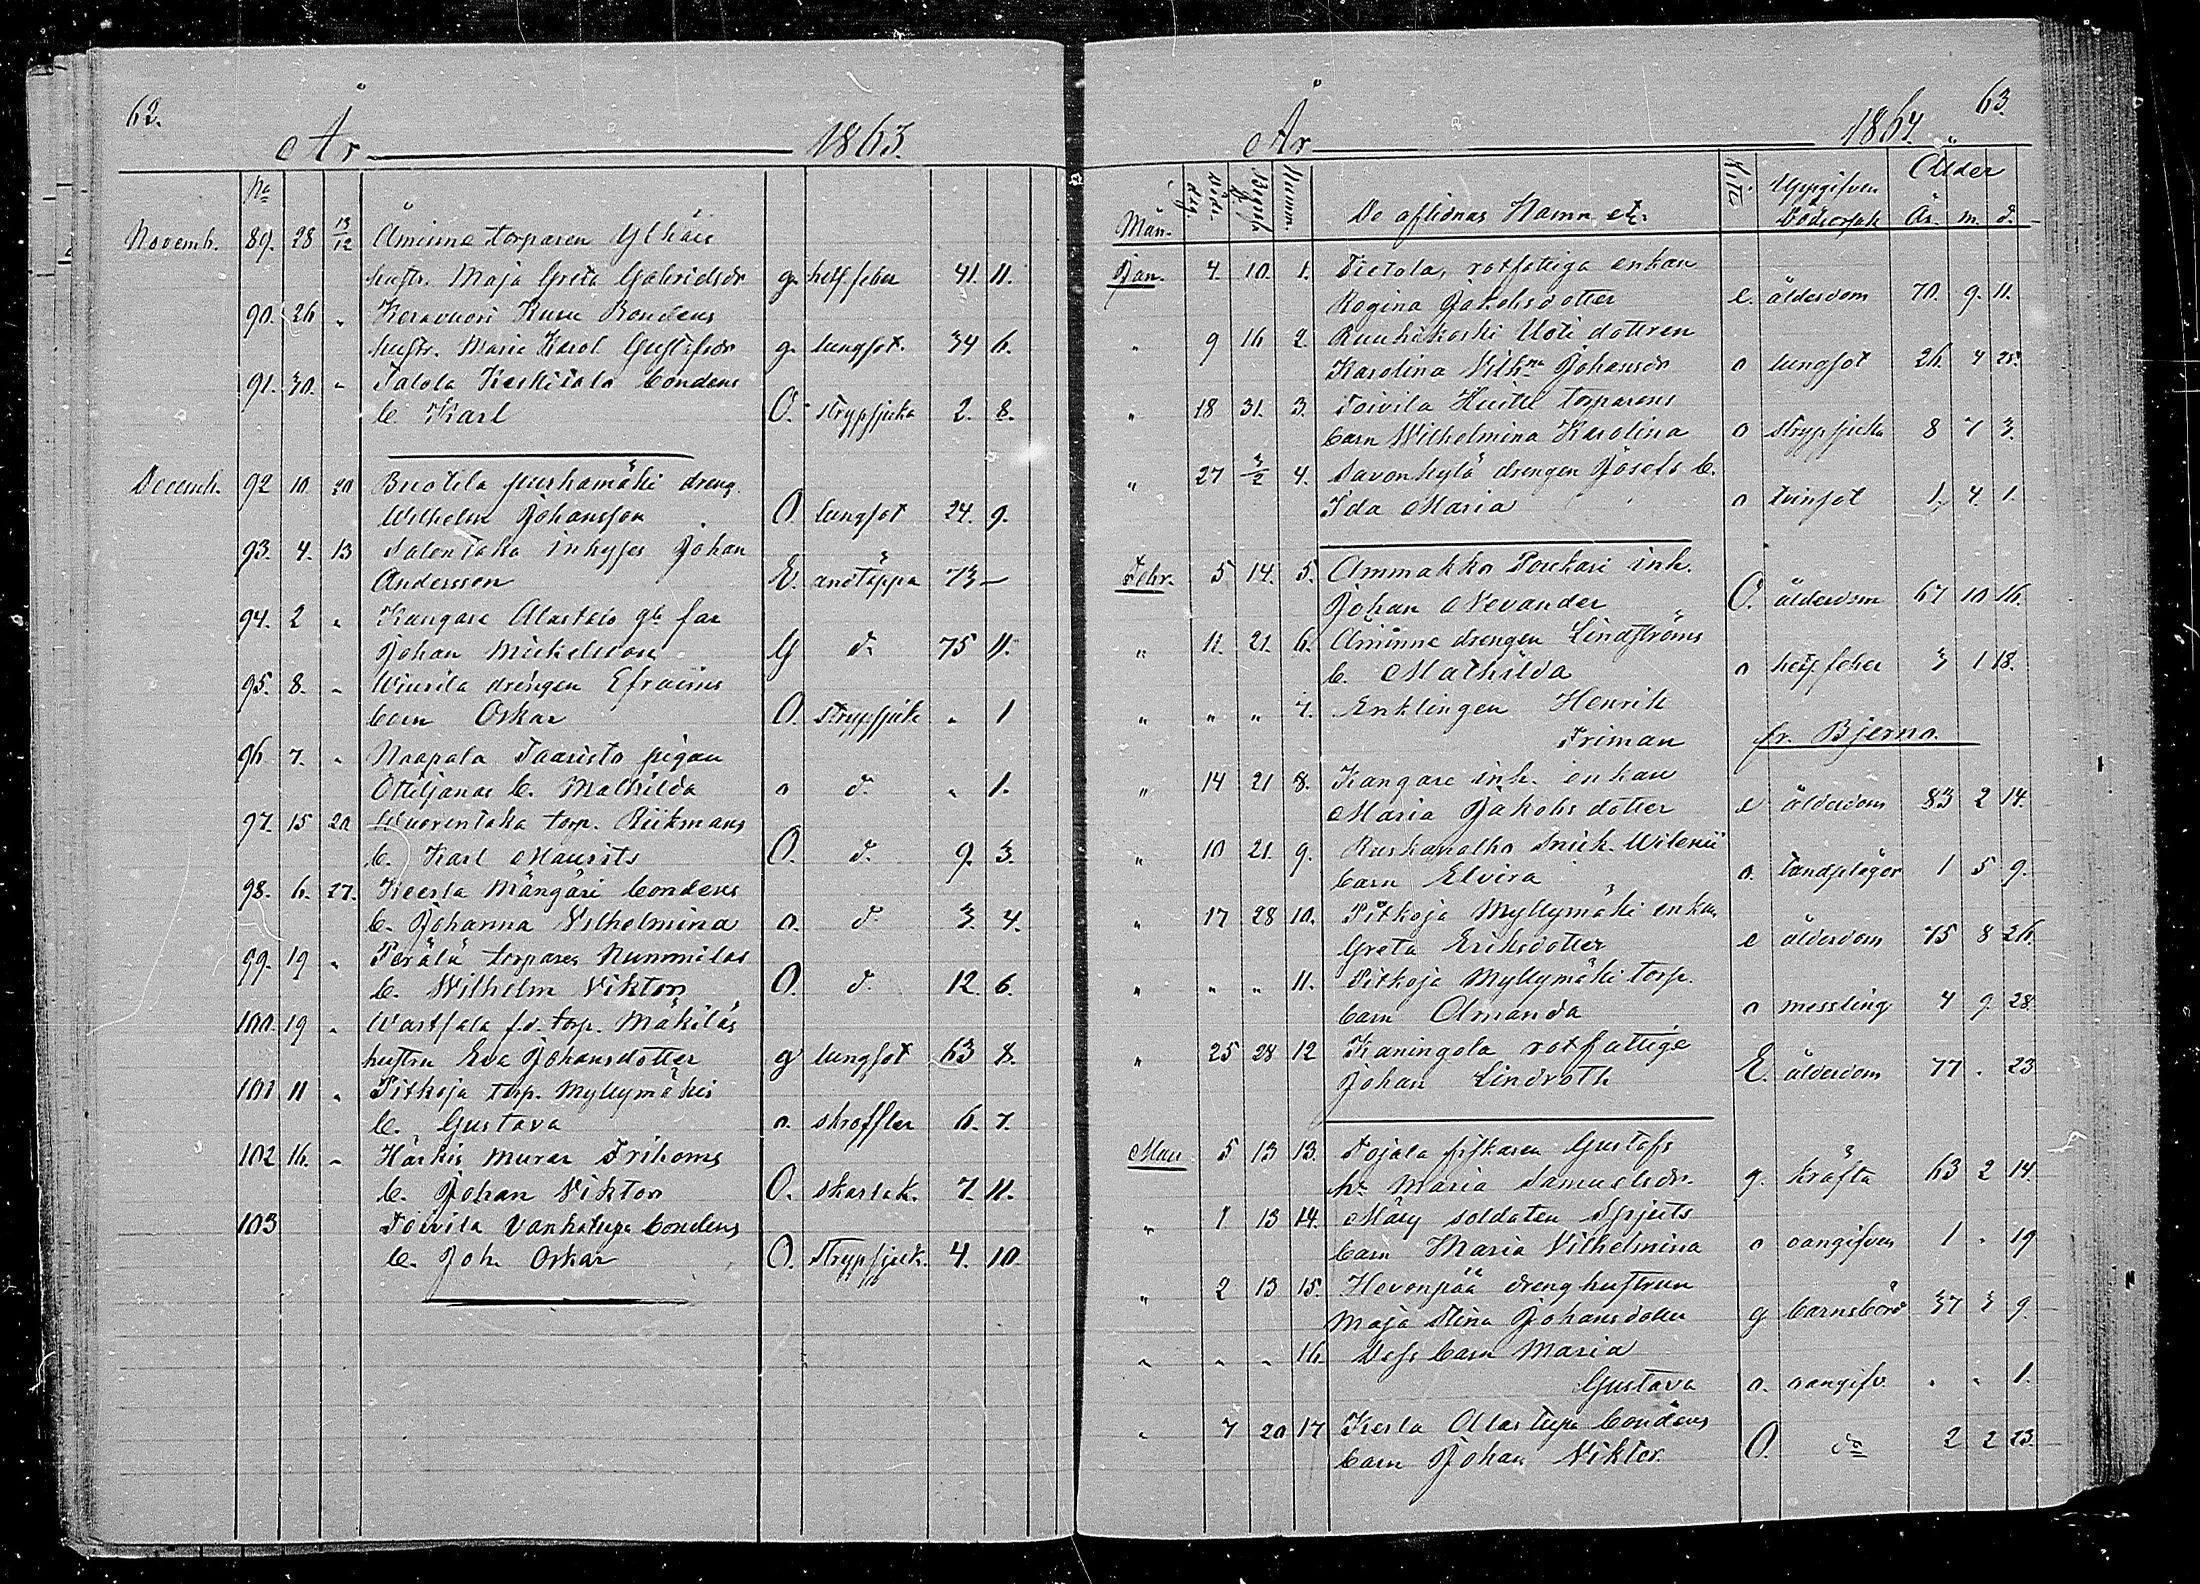 62.
År 1863.
No
Novemb. 89. 28 13/12 Åminne torparen Ylhäis
hustr. Maja Greta Gabrielsdr g. hetsfeber 41. 11.
90. 26 „ Koravuori Kusu Bondens
hustr. Maria Karol Gustafsdr g. lungsot. 34 6.
91. 30. „ Talola Keskitalo bondens
b. Karl O. strypsjuka 2. 8.
Decemb. 92 10. 20 purhamäki dreng.
Wilhelm Johansson O lungsot 24. 9.
93. 4. 13 inhyses Johan
Andersson E. andtäppa 73 –
94. 2 „ Kangare Alastalo gb. far
Johan Mickelsson G d. 75 11.
95. 8. „ drengen Efraims
barn Oskar O. strypsjuk „ 1
96 7. „ Naapala Taaristo pigan
Ottiljanas b. Mathilda o d. „ 1.
97. 15 20 Wuorentaka torp. Riikmans
b. Karl Maurits O. d. 9. 3.
98. 6. 27. Keerla Mängäri bondens
b. Johanna Vilhelmina o. d 3. 4.
99. 19 „ Perälä torparen Nummilas
b. Wilhelm Viktor O. d. 12. 6.
100. 19 „ fd. torp. Mäkiläs
hustru Eva Johansdotter g lungsot 63 8.
101 11 „ Pitkoja torp. Myllymäkis
b. Gustava o. skroffler 6. 7.
102 16. „ Härkis murar Frihoms
b. Johan Viktor O. skarlak. 7. 11.
103 Toivila Vanhatupa bondens
b. Joh. Oskar O. strypsjuk. 4. 10.
63.
År 1864.
Mån. Döds-dag. Begraf. d. Numm. De aflidnas Namn etc. Uppgifven Dödsorsak Ålder År. m. d.
Jan. 4. 10. 1. Tietola, rotfattiga enkan
Regina Jakobsdotter e. ålderdom 70. 9. 11.
„ 9 16 2. Ruuhikoski Uoti dottren
Karolina Vilhna Johansdr o lungsot 26. 4 25.
„ 18 31. 3. Toivila Huitti torparens
barn Wilhelmina Karolina o strypsjuka 8 7 3.
„ 27 3/2 4. Savonkylä drengen Josefs b.
Ida Maria o tvinsot 1. 4. 1.
Febr. 5 14. 5. Ammakko Poukari inh.
Johan Nevander O. ålderdom 67 10 16.
„ 11. 21. 6. Åminne drengen Lindströms
b. Mathilda o hetsfeber 3 1 18.
„ „ „ 7. Enklingen Henrik
Friman fr. Bjerno.
„ 14 21 8. Kangare inh. enkan
Maria Jakobsdotter e ålderdom 83 2 14.
„ 10 21. 9. Ruskanalho snick. Wilenii
barn Elvira o. tandplågor 1 5 9.
„ 17 28 10. Pitkoja Myllymäki enkan
Greta Eriksdotter e ålderdom 75 8 26.
„ „ „ 11. Pitkoja Myllymäki torp.
barn Amanda o messling 4 9. 28.
„ 25 28 12 Kaningola rotfattige
Johan Lindroth E. ålderdom 77 „ 23
Mars 5 13 13. Tojala fiskaren Gustafs
h. Maria Samuelsdr. g. kräfta 63 2 14.
„ 1 13 14. Märy soldaten Spjuts
barn Maria Vilhelmina o oangifven 1 „ 19
„ 2 13 15. Hevonpää dreng hustrun
Maja Stina Johansdotter g barnsbörd 37 3 9.
„ „ „ 16. Dess barn Maria
Gustava o. oangifv. „ „ 1.
„ 7 20 17 Kerla Alastupa bondens
barn Johan Viktor. O. do 2 2 23.